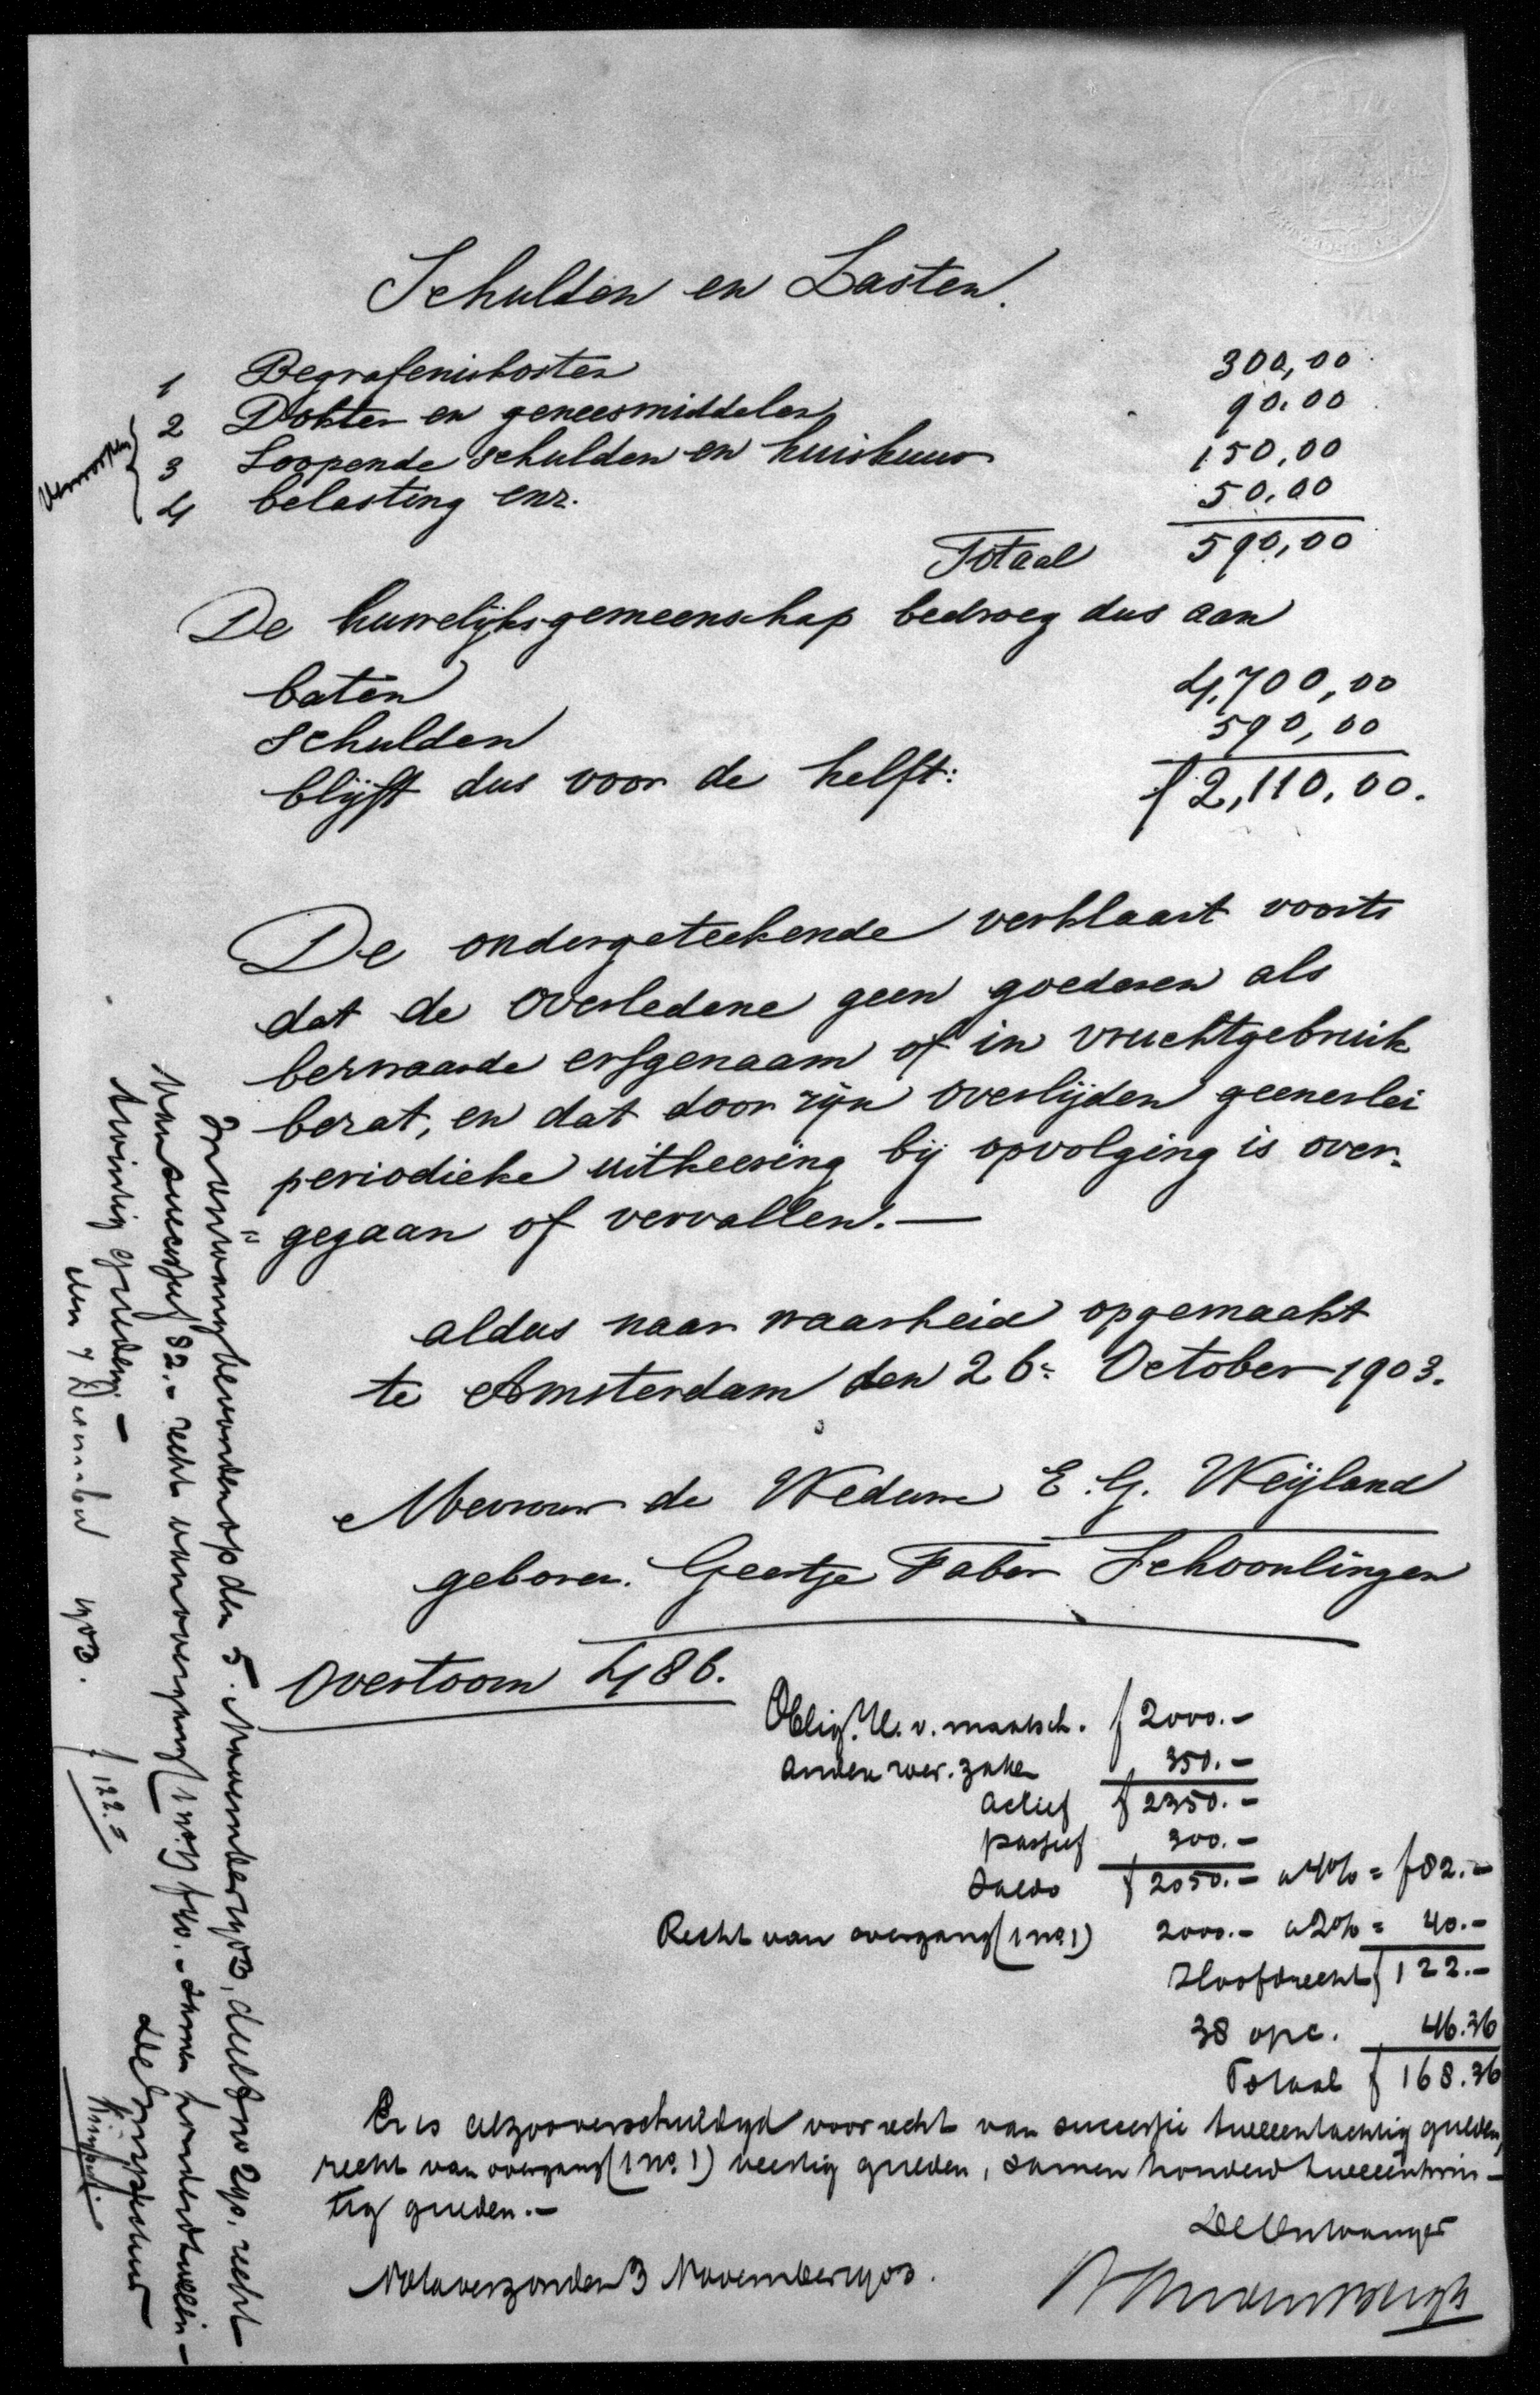 Schulden en Lasten.
1 Begrafeniskosten 300,00
2 Dokter en geneesmiddelen 90.00
3 Loopende schulden en huishuur 150,00
4 belasting enz. 50,00
Verworpen
Totaal 590,00
De huwelijksgemeenschap bedroeg dus aan
baten 4,700,00
schulden 590,00
blijft dus voor de helft: f 2,110,00.
De ondergeteekende verklaart voorts
dat de overledene geen goederen als
bezwaarde erfgenaam of in vruchtgebruik
bezat, en dat door zijn overlijden geenerlei
periodieke uitkeering bij opvolging is over-
gegaan of vervallen.—
aldus naar waarheid opgemaakt
te Amsterdam den 26= October 1903.
Mevrouw de Weduwe E. G. Weijland
geboren. Geertje Faber Schoonlingen
Overtoom 486.
Oblig. N. v. maatsch. f 2000.-
andere roer. zaken 350.-
actief f 2350.-
passief 300.-
Saldo f 2050.- a 4% = f 82.-
Recht van overgang (1 no. 1) 2000.- a 2% = 40.-
Hoofdrecht f 122.-
38 opc. 46.36
Totaal f 168.36
Er is alzoo verschuldigd voor recht van successie tweeentachtig gulden,
recht van overgang (1 no. 1) veertig gulden, samen honderd tweeentwin-
tig gulden.-
De Ontvanger
Nota verzonden 3 November 1903.
In ontvang bevonden op den 5. November 1903, deel no 290, recht
van successie f 82.- recht van overgang (1 no. 1) f 40.- samen honderd tweeen-
twintig gulden.-
den 7 December 1903. f 122.=
De Inspecteur